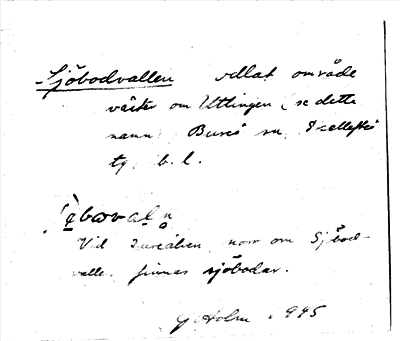 Sjöbodvallen odlat område
väster om Uttingen (se detta
namn) Bureå sn, Skellefteå
tg. b. l.
Vid Bureälven, norr om Sjöbod-
vallen finnas sjöbodar.
G. Holm 1945